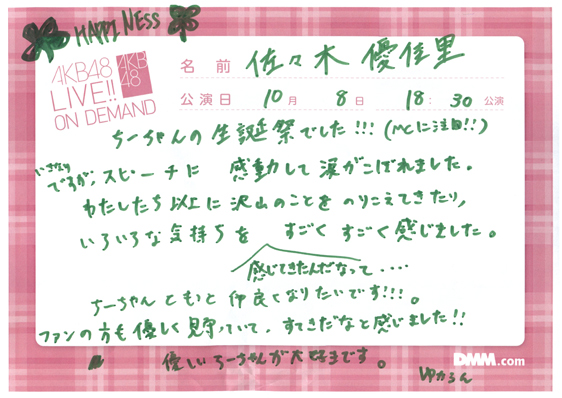 HAPPINESS
AKB48
LIVE!!
ON DEMAND
AKB
48
名前 佐々木優佳里
公演日 10月 8日 18:30公演
ちーちゃんの生誕祭でした!!!(MCに注目!!)
いきなりですが、スピーチに 感動して涙がこぼれました。
わたしたち以上に沢山のことをのりこえてきたり、
いろいろな気持ちを すごくすごく感じました。
感じてきたんだなって....
ちーちゃんともっと仲良くなりたいです!!!。
ファンの方も優しく見守っていて、すてきだなと感じました!!
優しいちーちゃんが大好きです。
DMM.com
ゆかるん